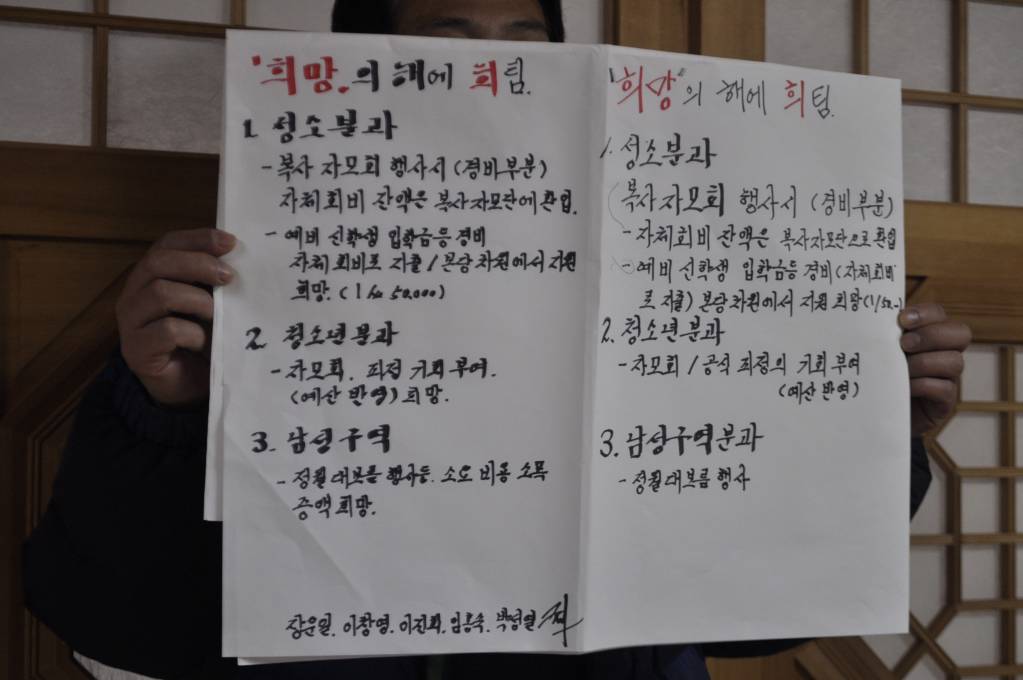 "희망"의 해에 희팀.
1. 성소분과
- 복사 자모회 행사시 (경비부분)
자체회비 잔액은 복사자모단에 환입.
- 예비 신학생 입학금등 경비
자체회비로 지출 / 본당 차원에서 지원
희망. (1/년 50,000)
2. 청소년분과
- 자모회. 피정 기회 부여.
(예산 반영) 희망.
3. 남성구역
- 정월 대보름 행사등. 소요 비용 소폭
증액 희망.
장운일. 이창영. 이진희.
"희망"의 해에 희팀.
1. 성소분과
복사 자모회 행사시 (경비부분)
- 자체회비 잔액은 복사자모단으로 환입
- 예비 신학생 입학금등 경비 (자체회비
로 지출) 본당차원에서 지원 희망 (1/50.-)
2. 청소년분과
- 자모회 / 공식 피정의 기회 부여
(예산 반영)
3. 남성구역분과
- 정월대보름 행사